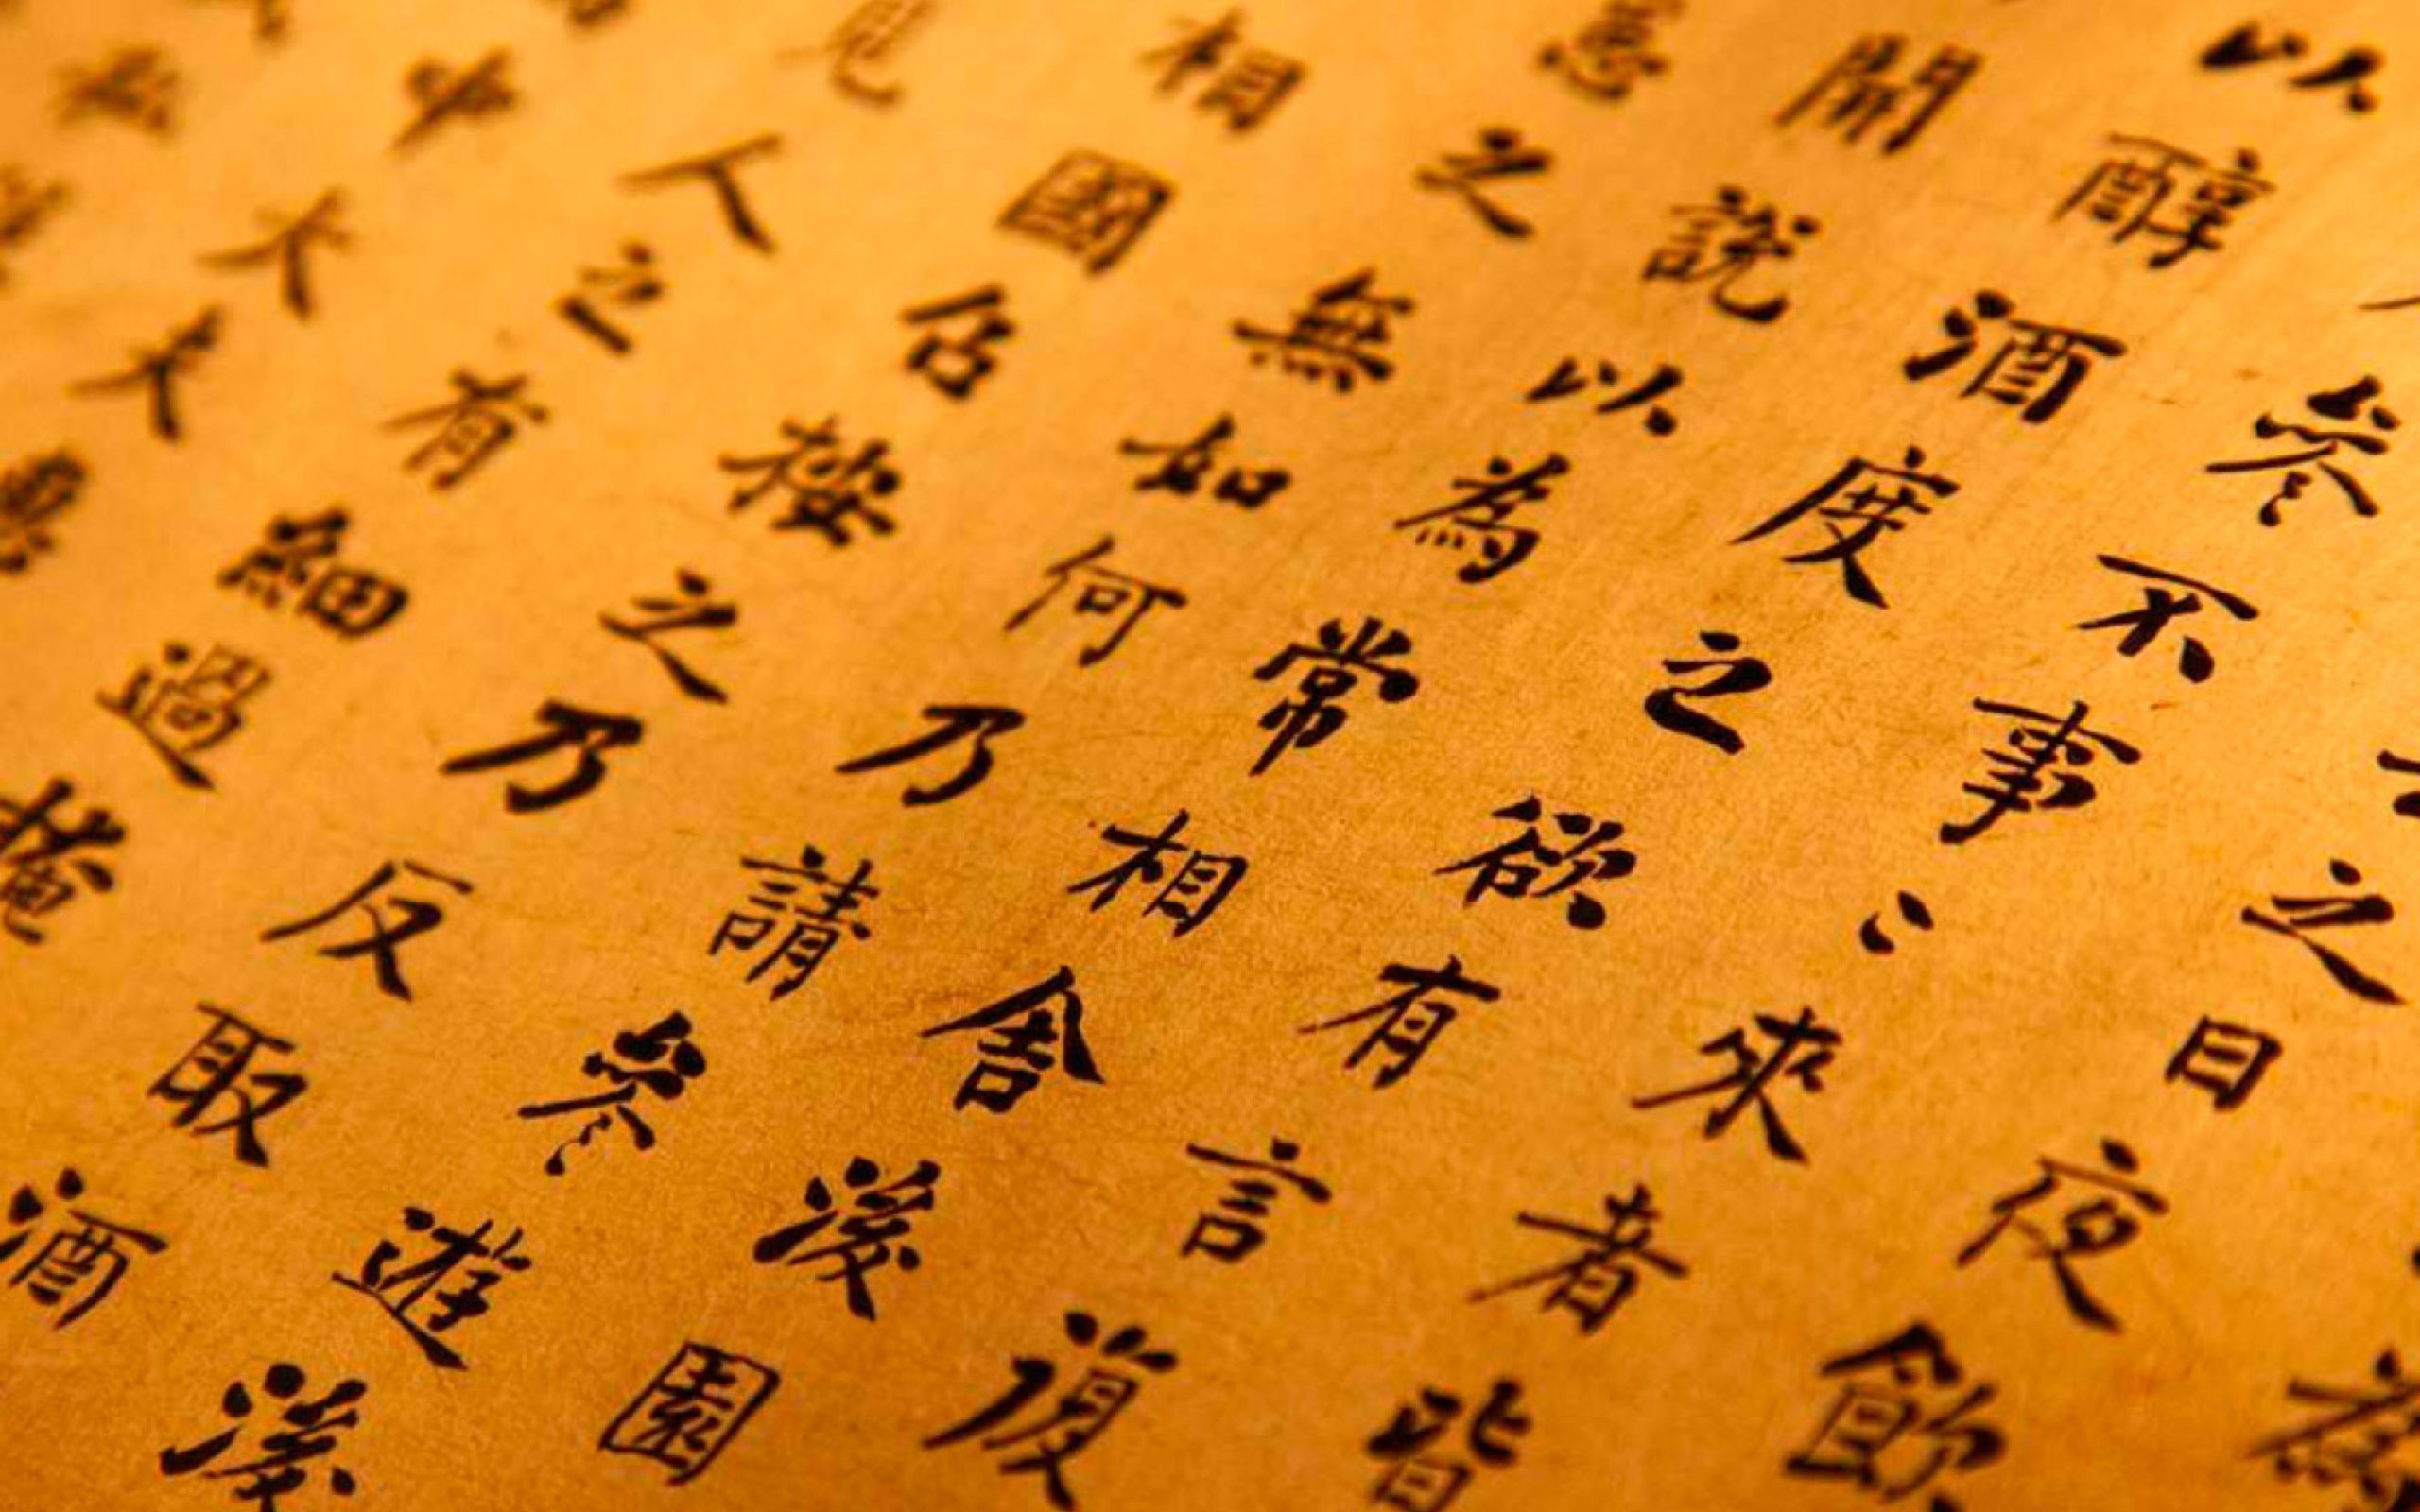 為
之日夜飲
參不事々來者皆
以醇酒度之欲有言復
開說以為常相舍後園
惡之無如何乃請參遊後
相國召按之乃反取酒
見人之有細過掩
中大夫